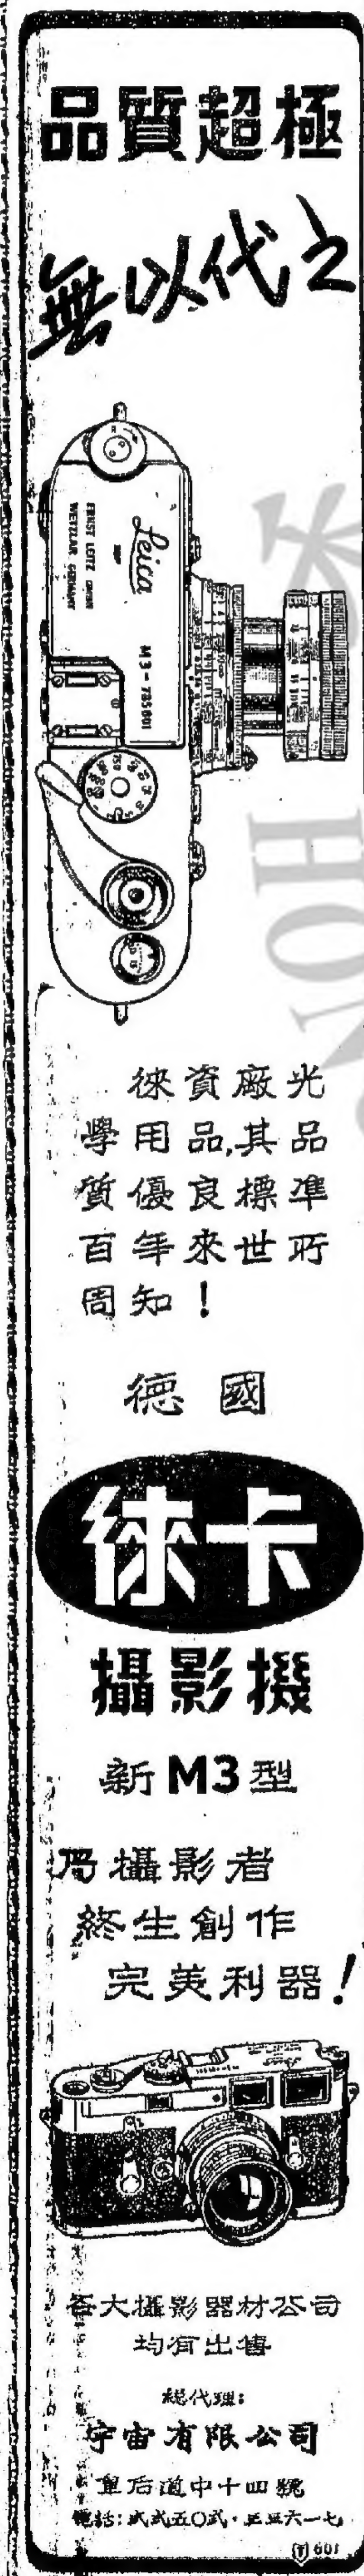 品質超極
無以代之
Leica
ERNST LEITZ GMBH
WETZLAR GERMANY
M3-785801
徠資廠光
學用品,其品
質優良標準
百年來世所
周知!
德國
徠卡
攝影機
新M3型
乃攝影者
終生創作
完美利器!
各大攝影器材公司
均有出售
總代理:
宇宙有限公司
皇后道中十四號
電話:弍弍五〇弍·三三六一七
601
HON